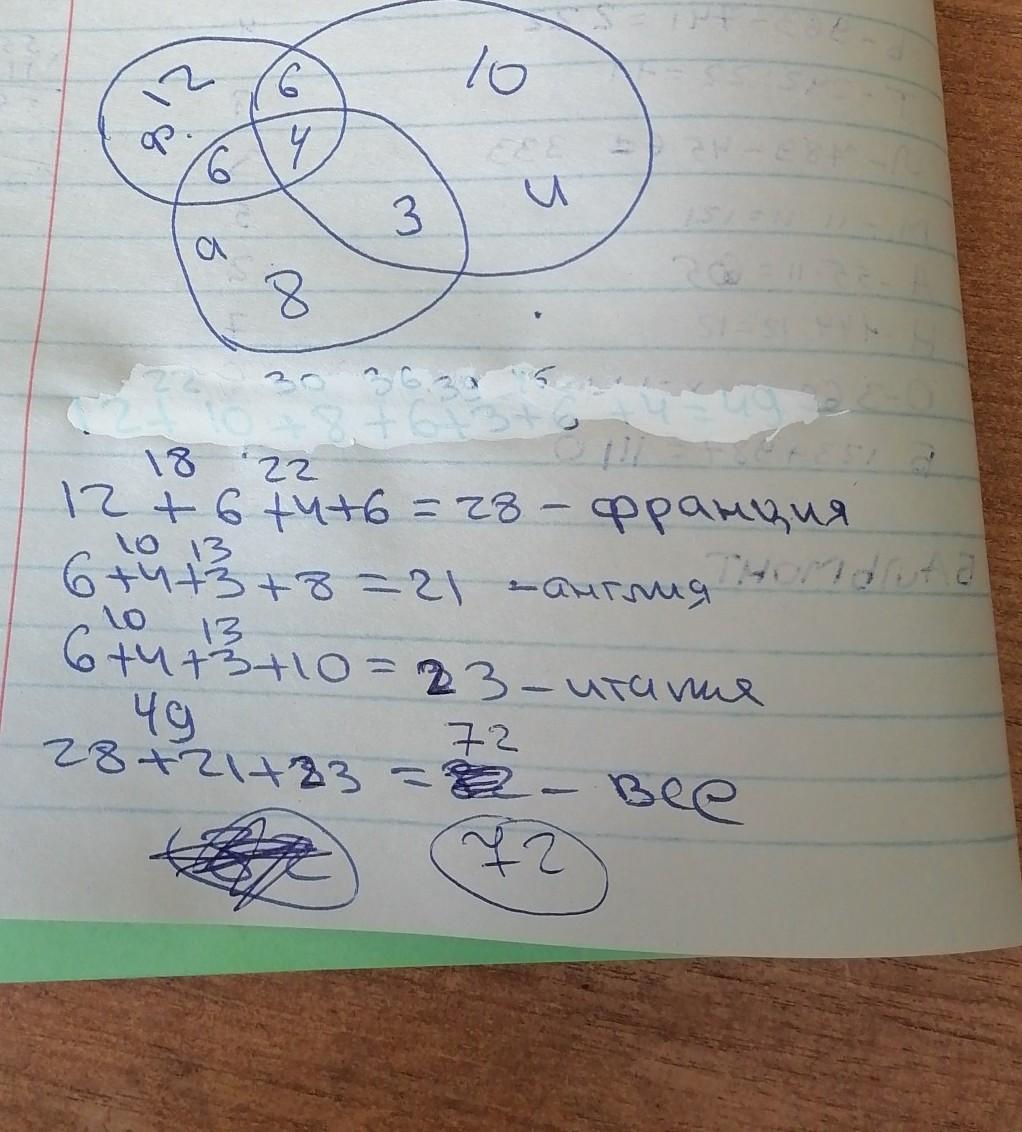 12 6 10
ф. 6 4
3 и
а
8
22 30 36 39 45
12 + 10 + 8 + 6 + 3 + 6 + 4 = 49
18 22
12 + 6 + 4 + 6 = 28 – франция
10 13
6 + 4 + 3 + 8 = 21 – англия
10 13
6 + 4 + 3 + 10 = 23 – италия
49 72
28 + 21 + 23 = – все
72